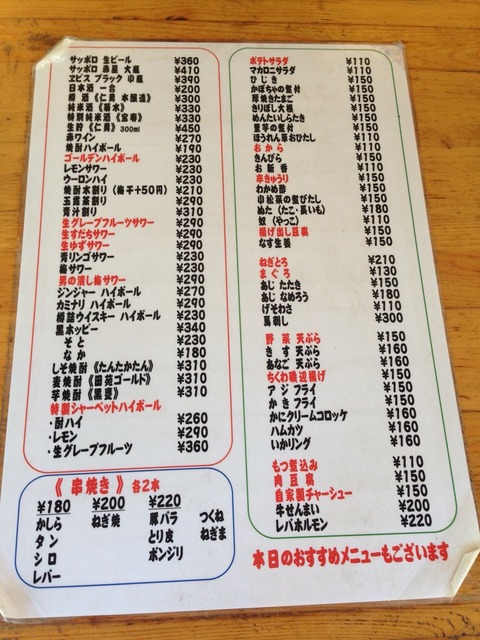 サッポロ 生ビール ¥360
サッポロ 赤星 大瓶 ¥410
ヱビス ブラック 中瓶 ¥390
日本酒 一合 ¥200
樽 酒《仁勇 本醸造》 ¥300
純米酒《 ¥330
特別純米酒《宝寿》 ¥330
生貯《仁勇》300ml ¥450
赤ワイン ¥270
焼酎ハイボール ¥190
ゴールデンハイボール ¥230
レモンサワー ¥230
ウーロンハイ ¥230
焼酎水割り(梅干+50円) ¥210
玉露茶割り ¥230
青汁割り ¥310
生グレープフルーツサワー ¥290
生すだちサワー ¥290
生ゆずサワー ¥290
青リンゴサワー ¥230
梅サワー ¥230
男の潰し梅サワー ¥290
ジンジャー ハイボール ¥270
カミナリ ハイボール ¥290
樽詰ウイスキー ハイボール ¥230
黒ホッピー ¥340
そと ¥230
なか ¥180
しそ焼酎《たんたかたん》 ¥310
麦焼酎《田苑ゴールド》 ¥310
芋焼酎《黒甕》 ¥310
特製シャーベットハイボール
・酎ハイ ¥260
・レモン ¥290
・生グレープフルーツ ¥360
《 串焼き 》各2本
¥180 ¥200 ¥220
かしら ねぎ焼 豚バラ つくね
タン とり皮 ねぎま
シロ ボンジリ
レバー
ポテトサラダ ¥110
マカロニサラダ ¥110
ひじき ¥150
かぼちゃの煮付 ¥150
厚焼きたまご ¥150
きりぼし大根 ¥150
めんたいしらたき ¥150
里芋の煮付 ¥150
ほうれん草おひたし ¥110
おから ¥110
きんぴら ¥150
お新香 ¥150
辛きゅうり ¥150
わかめ酢 ¥150
小松菜の煮びたし ¥150
ぬた(たこ・長いも) ¥180
奴(やっこ) ¥110
揚げ出し豆腐 ¥150
なす生姜 ¥150
ねぎとろ ¥210
まぐろ ¥130
あじ たたき ¥150
あじ なめろう ¥180
げそわさ ¥110
馬刺し ¥300
野菜 天ぷら ¥150
きす 天ぷら ¥160
あなご 天ぷら ¥160
ちくわ磯辺揚げ ¥150
アジ フライ ¥150
かき フライ ¥150
かにクリームコロッケ ¥160
ハムカツ ¥160
いかリング ¥160
もつ煮込み ¥110
肉豆腐 ¥150
自家製チャーシュー ¥150
牛せんまい ¥200
レバホルモン ¥220
本日のおすすめメニューもございます